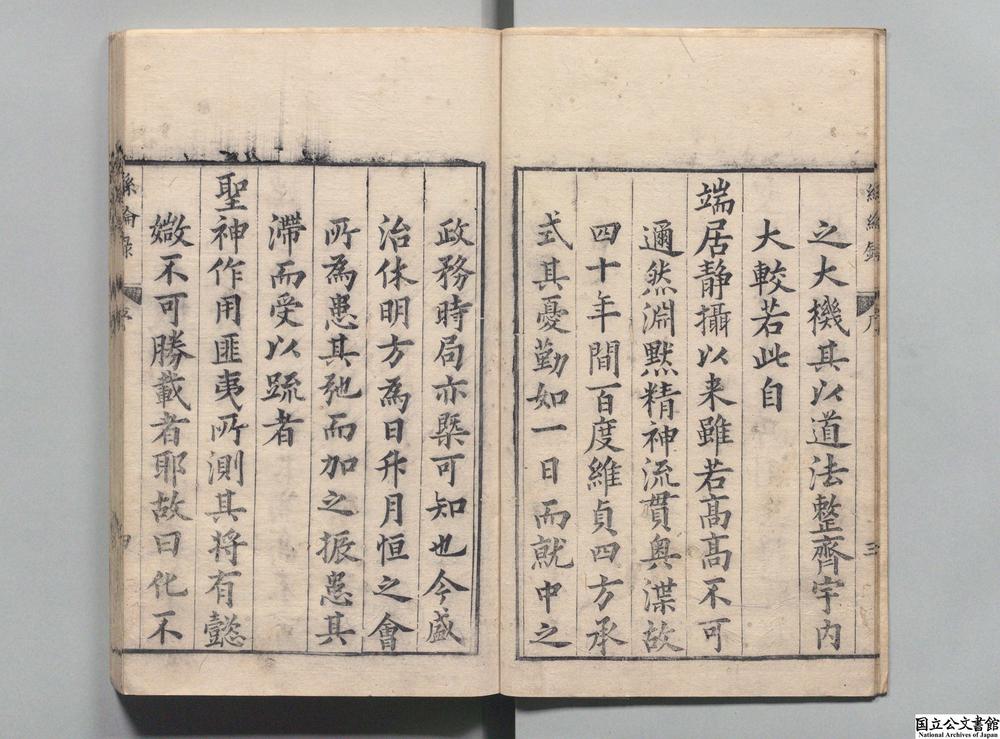 之大機其以道法整齊宇內
大較若此自
端居静攝以来雖若髙髙不可
邇然淵默精神流貫奥渫故
四十年間百度維貞四方承
式其憂勤如一日而就中之
政務時局亦槩可知也今盛
治休明方為日升月恒之會
所為患其弛而加之振患其
滯而受以䟽者
聖神作用匪夷所測其将有懿
媺不可勝載者耶故曰化不
絲綸錄
序
三
絲綸錄
序
四
国立公文書館
National Archives of Japan